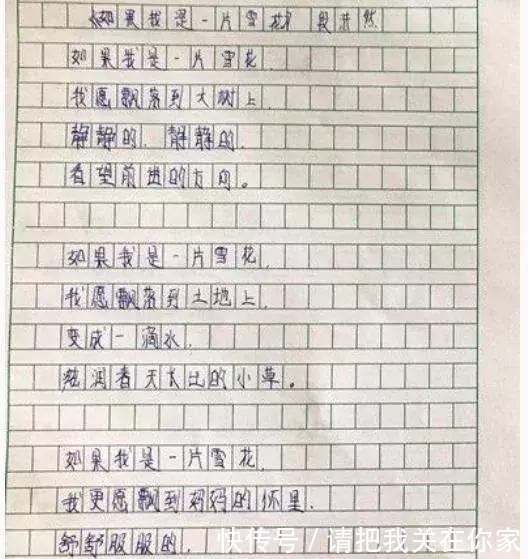 《如果我是一片雪花》 段 然
如果我是一片雪花,
我愿飘落到大树上,
静静的,静静的,
看望前进的方向。
如果我是一片雪花,
我愿飘落到土地上,
变成一滴水,
滋润着 长出的小草。
如果我是一片雪花,
我更愿飘到妈妈的怀里,
舒舒服服的,
快传号 / 请把我关在你家